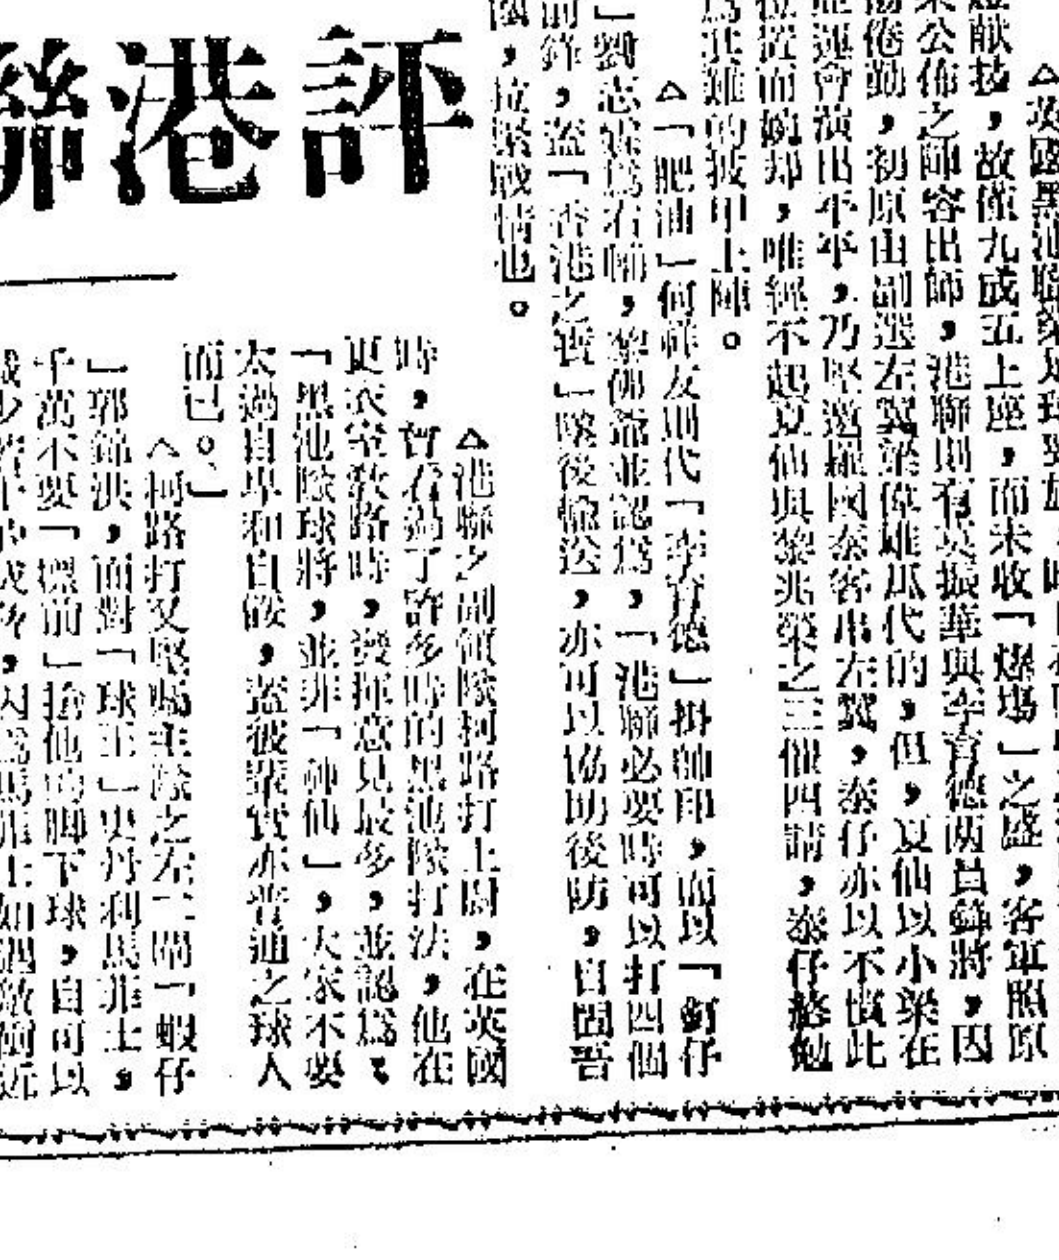 評港聯
△英國黑池職業足球隊
献技，故僅九成五上座，而未收「爆場」之盛，客軍照原
公佈之師容出師，港聯則有吳振華與李育德两員蘚將，因
倦勤，初原由副選左翼梁偉雄瓜代的，但，夏仙以小梁在
運會演出平平，乃堅邀羅國泰客串左翼，泰仔亦以不慣此
位置而婉却，唯經不起夏仙與黎兆榮之三催四請，泰仔終勉
爲其難的披甲上陣。
△「肥油」何祥友則代「李育德」掛帥印，而以「釘仔
」劉志霖爲右輔，黎佛爺並認爲，「港聯必要時可以打四個
前鋒，蓋「香港之寶」墜後檢送，亦可以協助後防，自固吾
圉，拉緊戰情也。
△港聯之副領隊柯路打上尉，在英國
時，曾看過了許多時的黑池隊打法，他在
更衣室敎路時，發揮意見最多，並認爲：
「黑池隊球將，並非「神仙」，大家不要
太過自卑和自餒，蓋彼輩實亦普通之球人
而已。」
△柯路打又堅囑主隊之左二閘「蝦仔
」郭錦洪，面對「球王」史丹利馬菲士，
千萬不要「標前」搶他的脚下球，自可以
因爲馬菲士如遇敵衛近